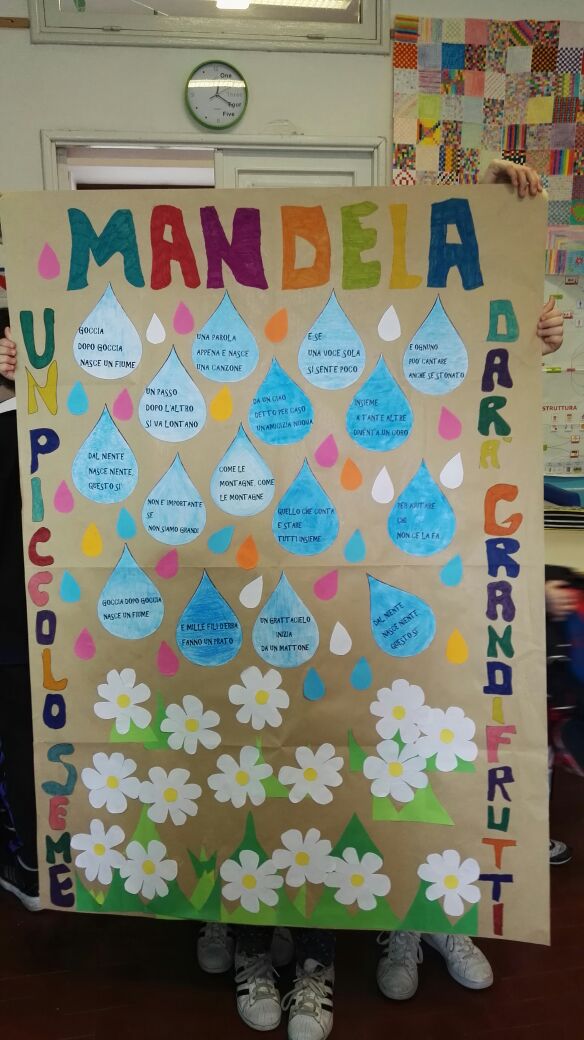 One
Three
Four
Five
MANDELA
UN PICCOLO SEME
DARA' GRANDI FRUTTI
GOCCIA
DOPO GOCCIA
NASCE UN FIUME
UNA PAROLA
APPENA E NASCE
UNA CANZONE
E SE
UNA VOCE SOLA
SI SENTE POCO
E OGNUNO
PUO' CANTARE
ANCHE SE STONATO
UN PASSO
DOPO L'ALTRO
SI VA LONTANO
DA UN CIAO
DETTO PER CASO
UN'AMICIZIA NUOVA
INSIEME
A TANTE ALTRE
DIVENTA UN CORO
DAL NENTE
NASCE NENTE,
QUESTO SI'
NON E IMPORTANTE
SE
NON SIAMO GRANDI
COME LE
MONTAGNE, COME
LE MONTAGNE
QUELLO CHE CONTA
E STARE
TUTTI INSIEME
PER AIUTARE
CHI
NON CE LA FA
GOCCIA DOPO GOCCIA
NASCE UN FIUME
E MILLE FILI D'ERBA
FANNO UN PRATO
UN GRATTACIELO
INIZIA
DA UN MATTONE
DAL NENTE
NASCE NENTE
QUESTO SI'
STRUTTURA